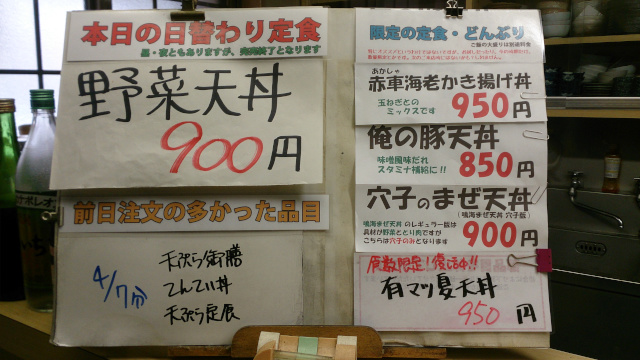 本日の日替わり定食
昼・夜ともありますが、完売終了となります
野菜天丼
900円
前日注文の多かった品目
4/7分
天ぷら御膳
てんてい丼
天ぷら定食
限定の定食・どんぶり
ご飯の大盛りは別途料金
あかしゃ
赤車海老かき揚げ丼
玉ねぎとの
ミックスです
950円
俺の豚天丼
味噌風味だれ
スタミナ補給に!!
850円
穴子のまぜ天丼
(鳴海まぜ天丼 穴子版)
鳴海まぜ天丼 のレギュラー版は
具材が野菜ととり肉ですが
こちらは穴子のみとなります
900円
復活中!!
有マツ夏天丼
950円